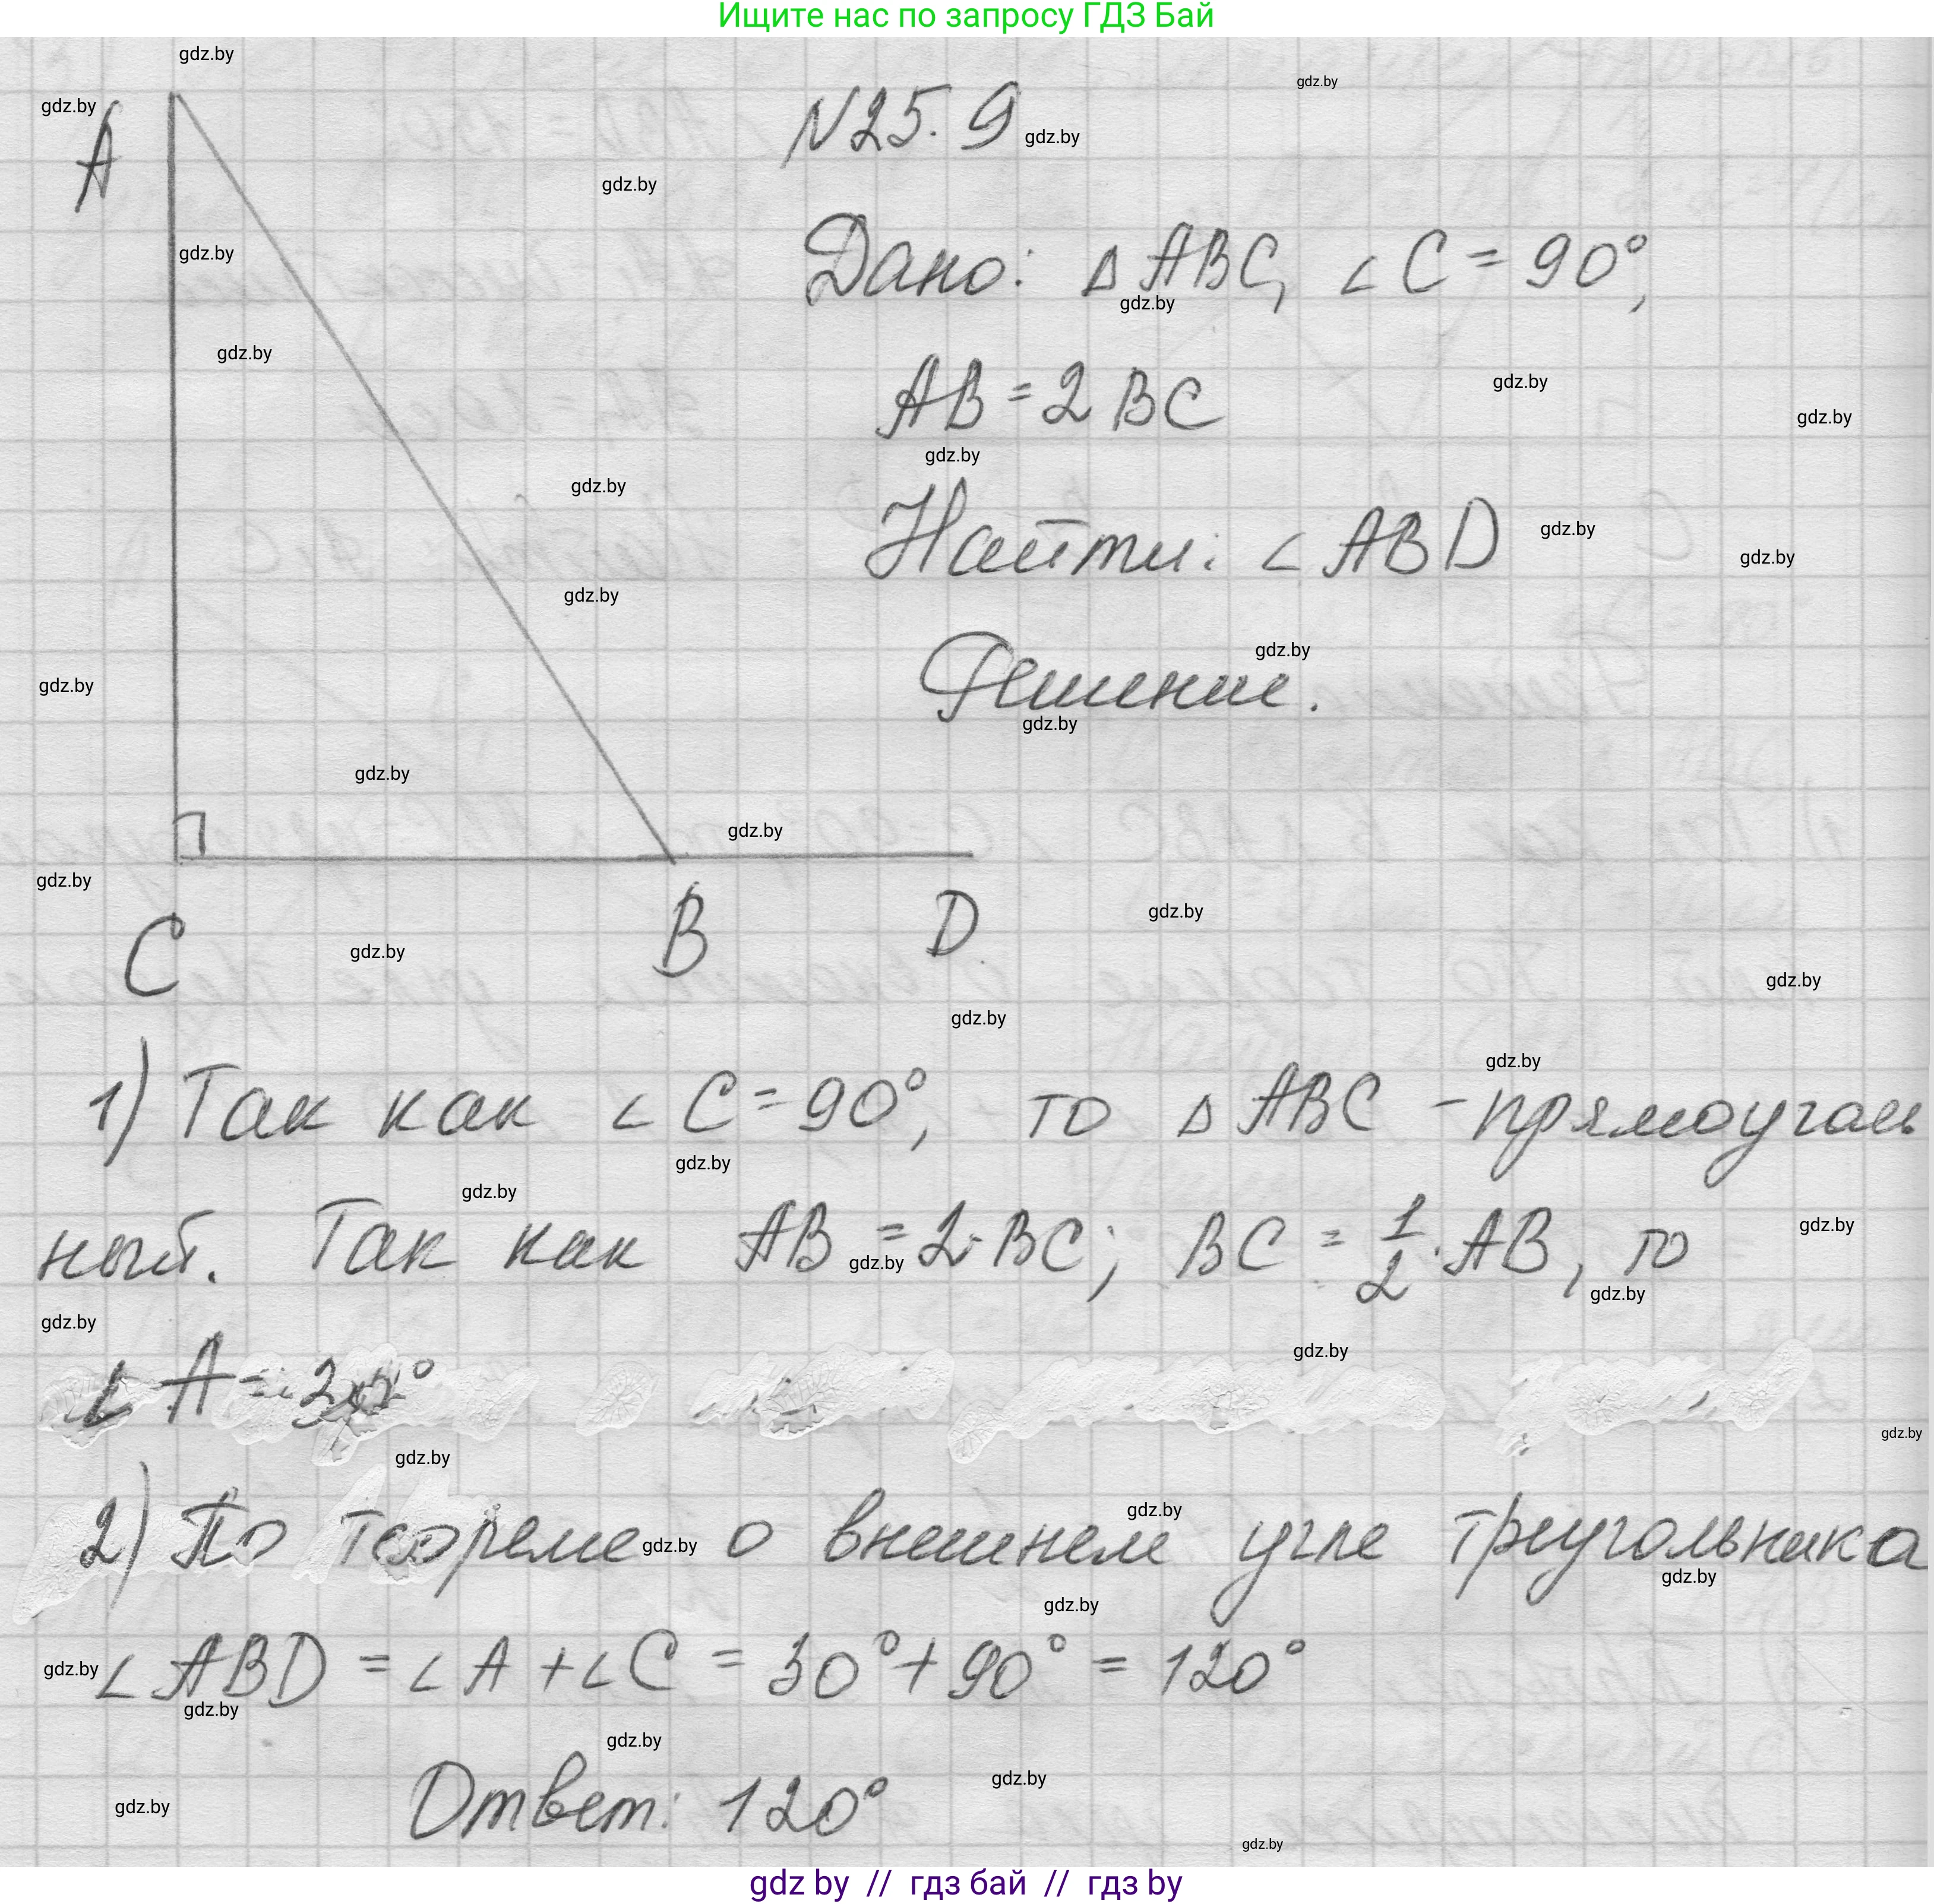 Ищите нас по запросу ГДЗ Бай
N25.9
Дано: △ ABC, ∠ C = 90°,
AB = 2 BC
Найти: ∠ ABD
Решение.
A
C
B
D
1) Так как ∠ C = 90°, то △ ABC - прямоуголь
ный. Так как AB = 2·BC; BC = 1/2 · AB, то
∠ A = 30°
2) По теореме о внешнем угле треугольника
∠ ABD = ∠ A + ∠ C = 30° + 90° = 120°
Ответ: 120°
gdz.by
gdz by // гдз бай // гдз by